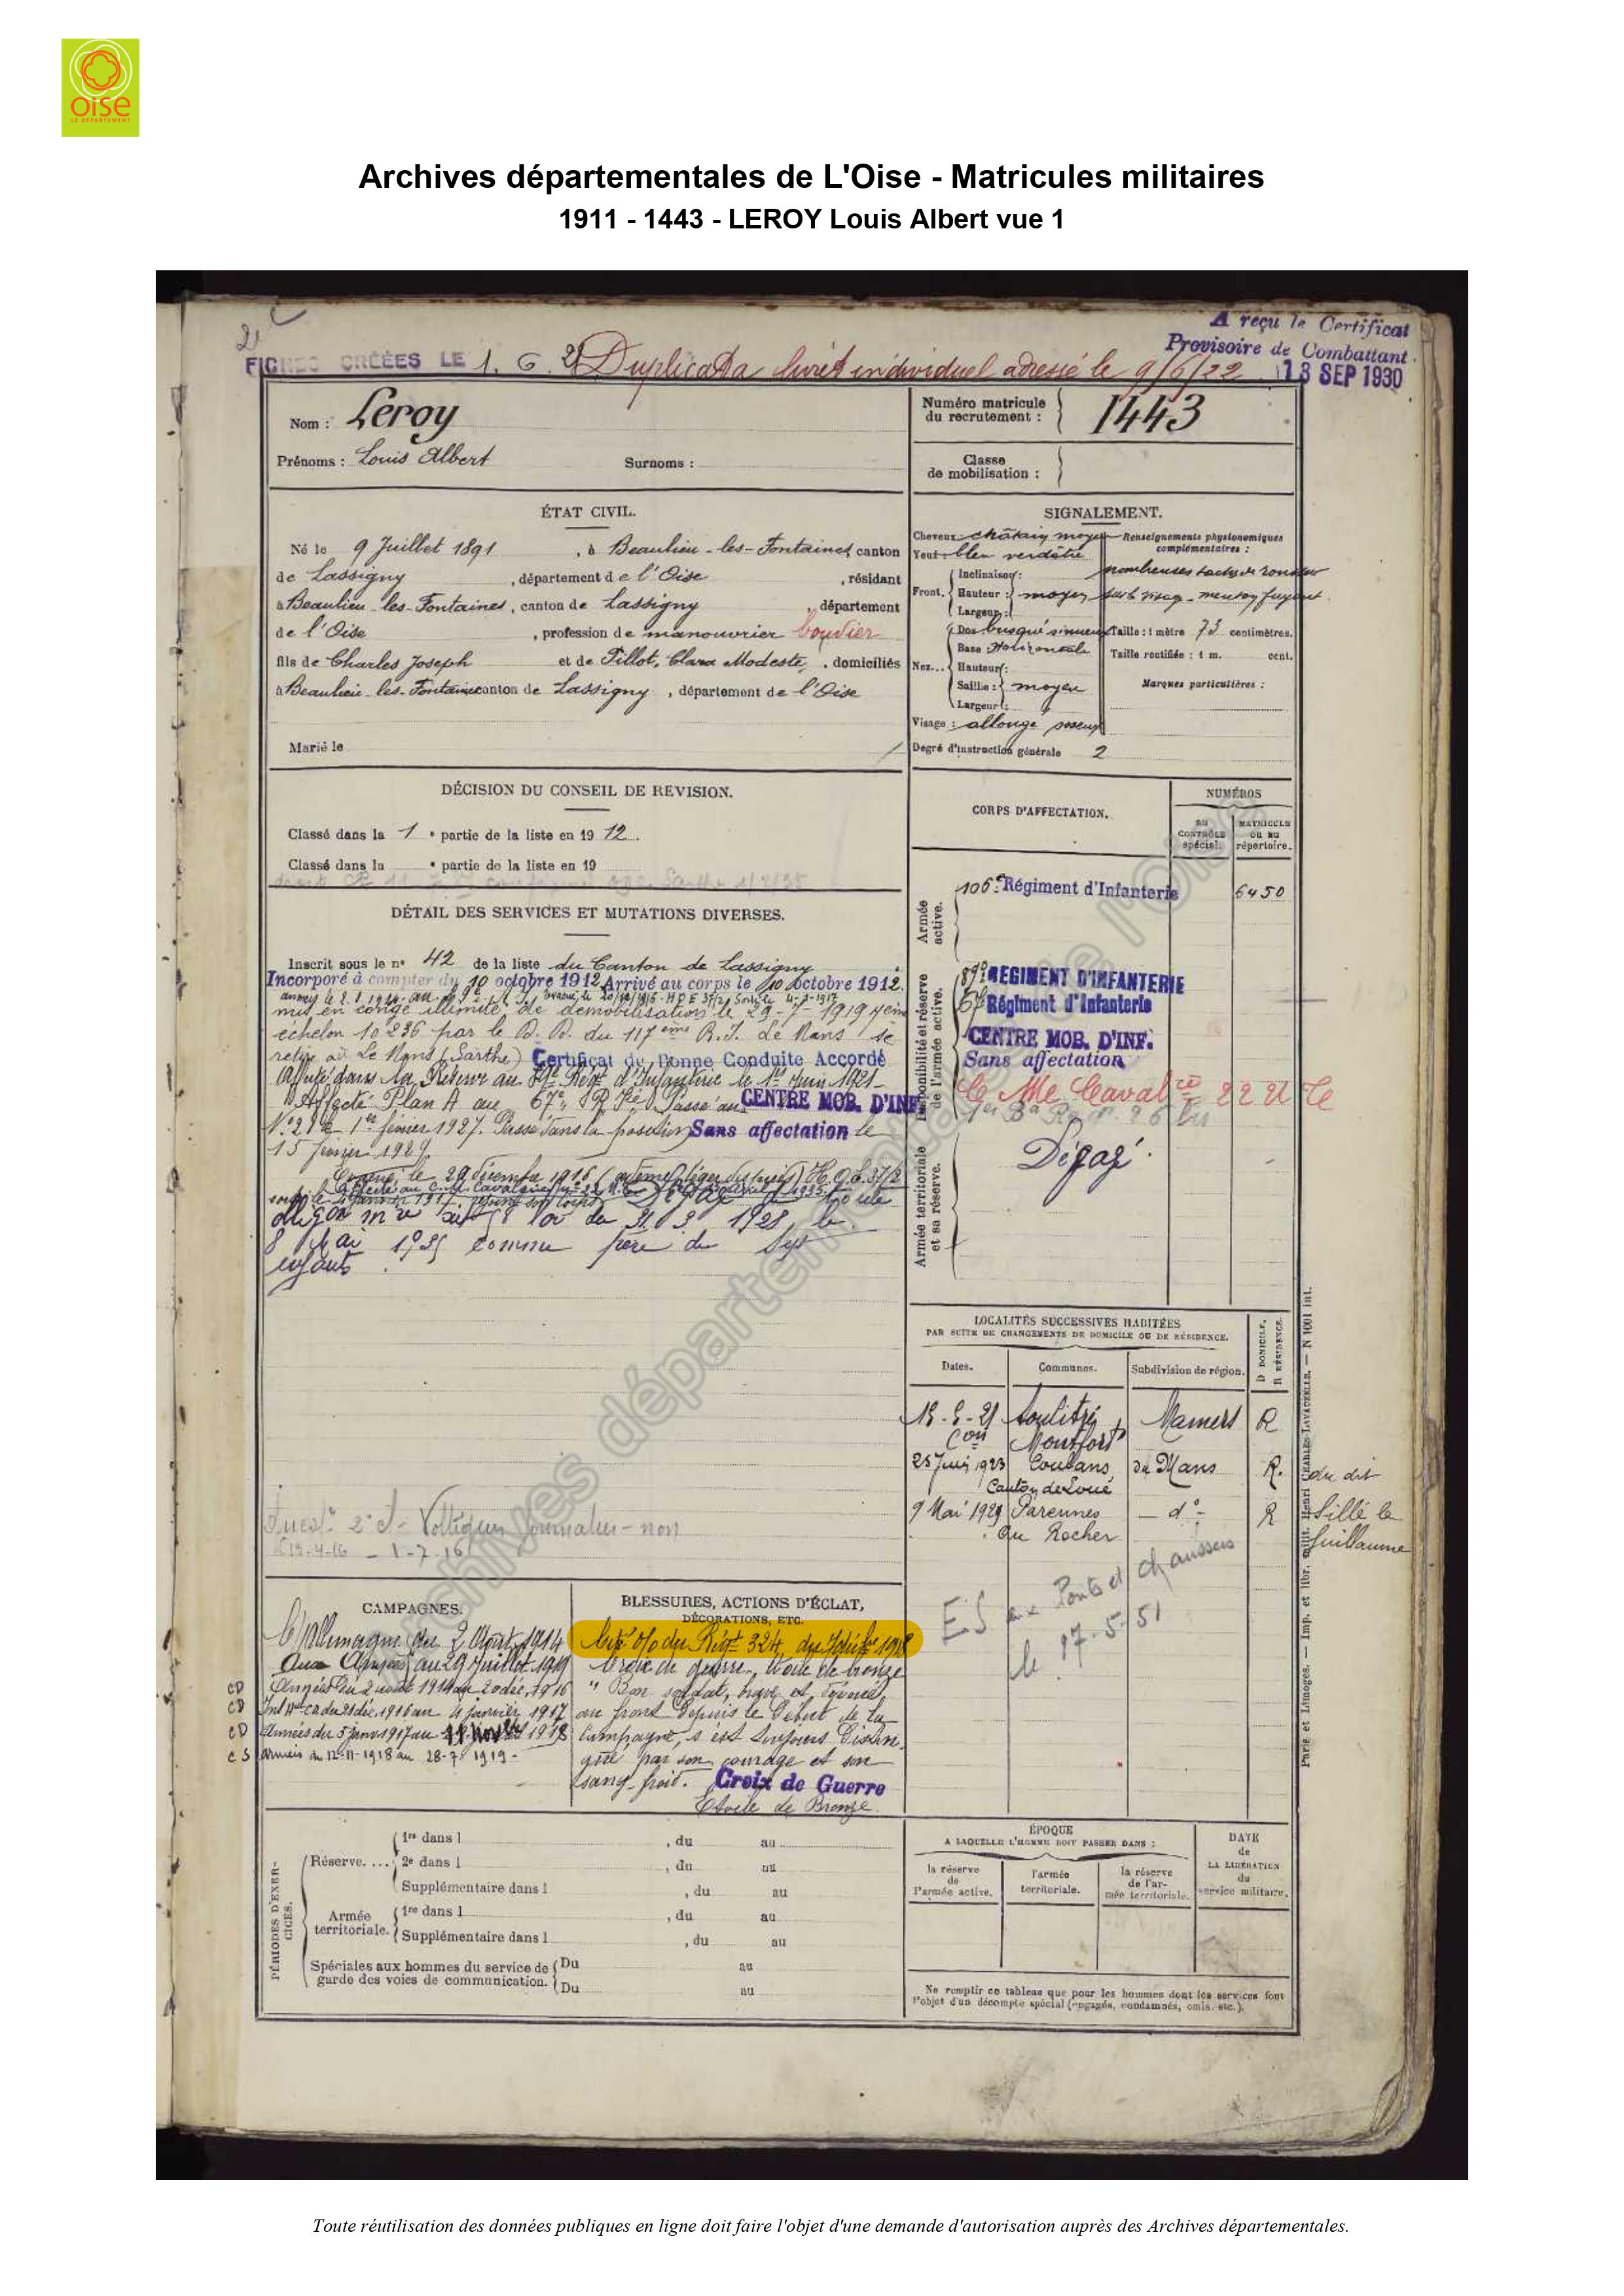 Oise
LE DÉPARTEMENT
Archives départementales de L'Oise - Matricules militaires
1911 - 1443 - LEROY Louis Albert vue 1
A reçu le Certificat
Provisoire de Combattant.
13 SEP 1930
FICHES CRÉÉES LE 1. G. 21 Duplicata livret individuel adressé le 9/6/22
Nom : Leroy
Prénoms : Louis Albert Surnoms :
Numéro matricule du recrutement : 1443
Classe de mobilisation :
ÉTAT CIVIL.
Né le 9 Juillet 1891, à Beaulieu-les-Fontaines, canton
de Lassigny, département de l'Oise, résidant
à Beaulieu-les-Fontaines, canton de Lassigny, département
de l'Oise, profession de manouvrier bouvier
fils de Charles Joseph et de Pillot, Clara Modeste, domiciliés
à Beaulieu-les-Fontaines canton de Lassigny, département de l'Oise
Marié le
SIGNALEMENT.
Cheveux châtain moyen
Yeux bleu verdâtre
Front. Inclinaison :
Hauteur : moyen
Largeur :
Nez... Dos busqué sinueux
Base Horizontale
Hauteur :
Saillie : moyen
Largeur :
Visage : allongé osseux
Renseignements physionomiques complémentaires :
nombreuses taches de rousseur
sur le visage - menton fuyant
Taille : 1 mètre 73 centimètres.
Taille rectifiée : 1 m. cent.
Marques particulières :
Degré d'instruction générale 2
DÉCISION DU CONSEIL DE REVISION.
Classé dans la 1e partie de la liste en 1912.
Classé dans la e partie de la liste en 19
DÉTAIL DES SERVICES ET MUTATIONS DIVERSES.
Inscrit sous le n° 42 de la liste du Canton de Lassigny
Incorporé à compter du 10 octobre 1912 Arrivé au corps le 10 octobre 1912.
mis en congé illimité de démobilisation le 29-7-1919 4ème
échelon 10236 par le D. D. du 117ème R.I. Le Mans se
retire au Le Mans (Sarthe) Certificat de Bonne Conduite Accordé
Affecté dans la Réserve au 89e Régt d'Infanterie le 1er Juin 1921
Affecté Plan A au 67e R. Passé au CENTRE MOB. D'INF.
1er février 1927. Passé dans la position Sans affectation le
15 février 1929
le 29 décembre 1916 H.O.E. 37/2
8 Mai 1935 comme père de
enfants.
CORPS D'AFFECTATION.
NUMÉROS
au CONTRÔLE spécial.
MATRICULE OU AU répertoire.
Armée active.
106e Régiment d'Infanterie 6450
Disponibilité et réserve de l'armée active.
89e REGIMENT D'INFANTERIE
67e Régiment d'Infanterie
CENTRE MOB. D'INF.
Sans affectation
Armée territoriale et sa réserve.
Dégagé.
LOCALITÉS SUCCESSIVES HABITÉES
PAR SUITE DE CHANGEMENTS DE DOMICILE OU DE RÉSIDENCE.
Dates. Communes. Subdivision de région. D DOMICILE, R RÉSIDENCE.
Soulitré Mamers R
Con Montfort
25 Juin 1923 Coulans du Mans R. du dit
Canton de Loué
9 Mai 1929 Parennes - d° - R Sillé le
Guillaume
ES aux Ponts et chaussées
le 17-5-51
CAMPAGNES.
C/Allemagne du 2 Août 1914
Aux Armées au 29 Juillet 1919
CD Armées du 2 août 1914 au 20 déc. 1916
CD Int du 21 déc. 1916 au 4 janvier 1917
CD Armées du 5 janv 1917 au 11 Nov 1918
CS armées du 12-11-1918 au 28-7-1919 -
BLESSURES, ACTIONS D'ÉCLAT, DÉCORATIONS, ETC.
Cité o/o du Régt 324, du 1918
Croix de guerre, étoile de bronze
" Bon soldat, brave et dévoué,
au front depuis le début de la
Campagne, s'est toujours distin-
gué par son courage et son
sang-froid. Croix de Guerre
Etoile de Bronze
PÉRIODES D'EXERCICES.
Réserve.... 1re dans l , du au
2e dans l , du au
Supplémentaire dans l , du au
Armée territoriale. 1re dans l , du au
Supplémentaire dans l , du au
Spéciales aux hommes du service de garde des voies de communication. Du au
Du au
ÉPOQUE
A LAQUELLE L'HOMME DOIT PASSER DANS :
la réserve de l'armée active.
l'armée territoriale.
la réserve de l'armée territoriale.
DATE de LA LIBÉRATION du service militaire.
Ne remplir ce tableau que pour les hommes dont les services font
l'objet d'un décompte spécial (engagés, condamnés, omis, etc.).
Paris et Limoges. — Imp. et libr. milit. Henri CHARLES-LAVAUZELLE. — N 1001 int.
Archives départementales de l'Oise
Toute réutilisation des données publiques en ligne doit faire l'objet d'une demande d'autorisation auprès des Archives départementales.